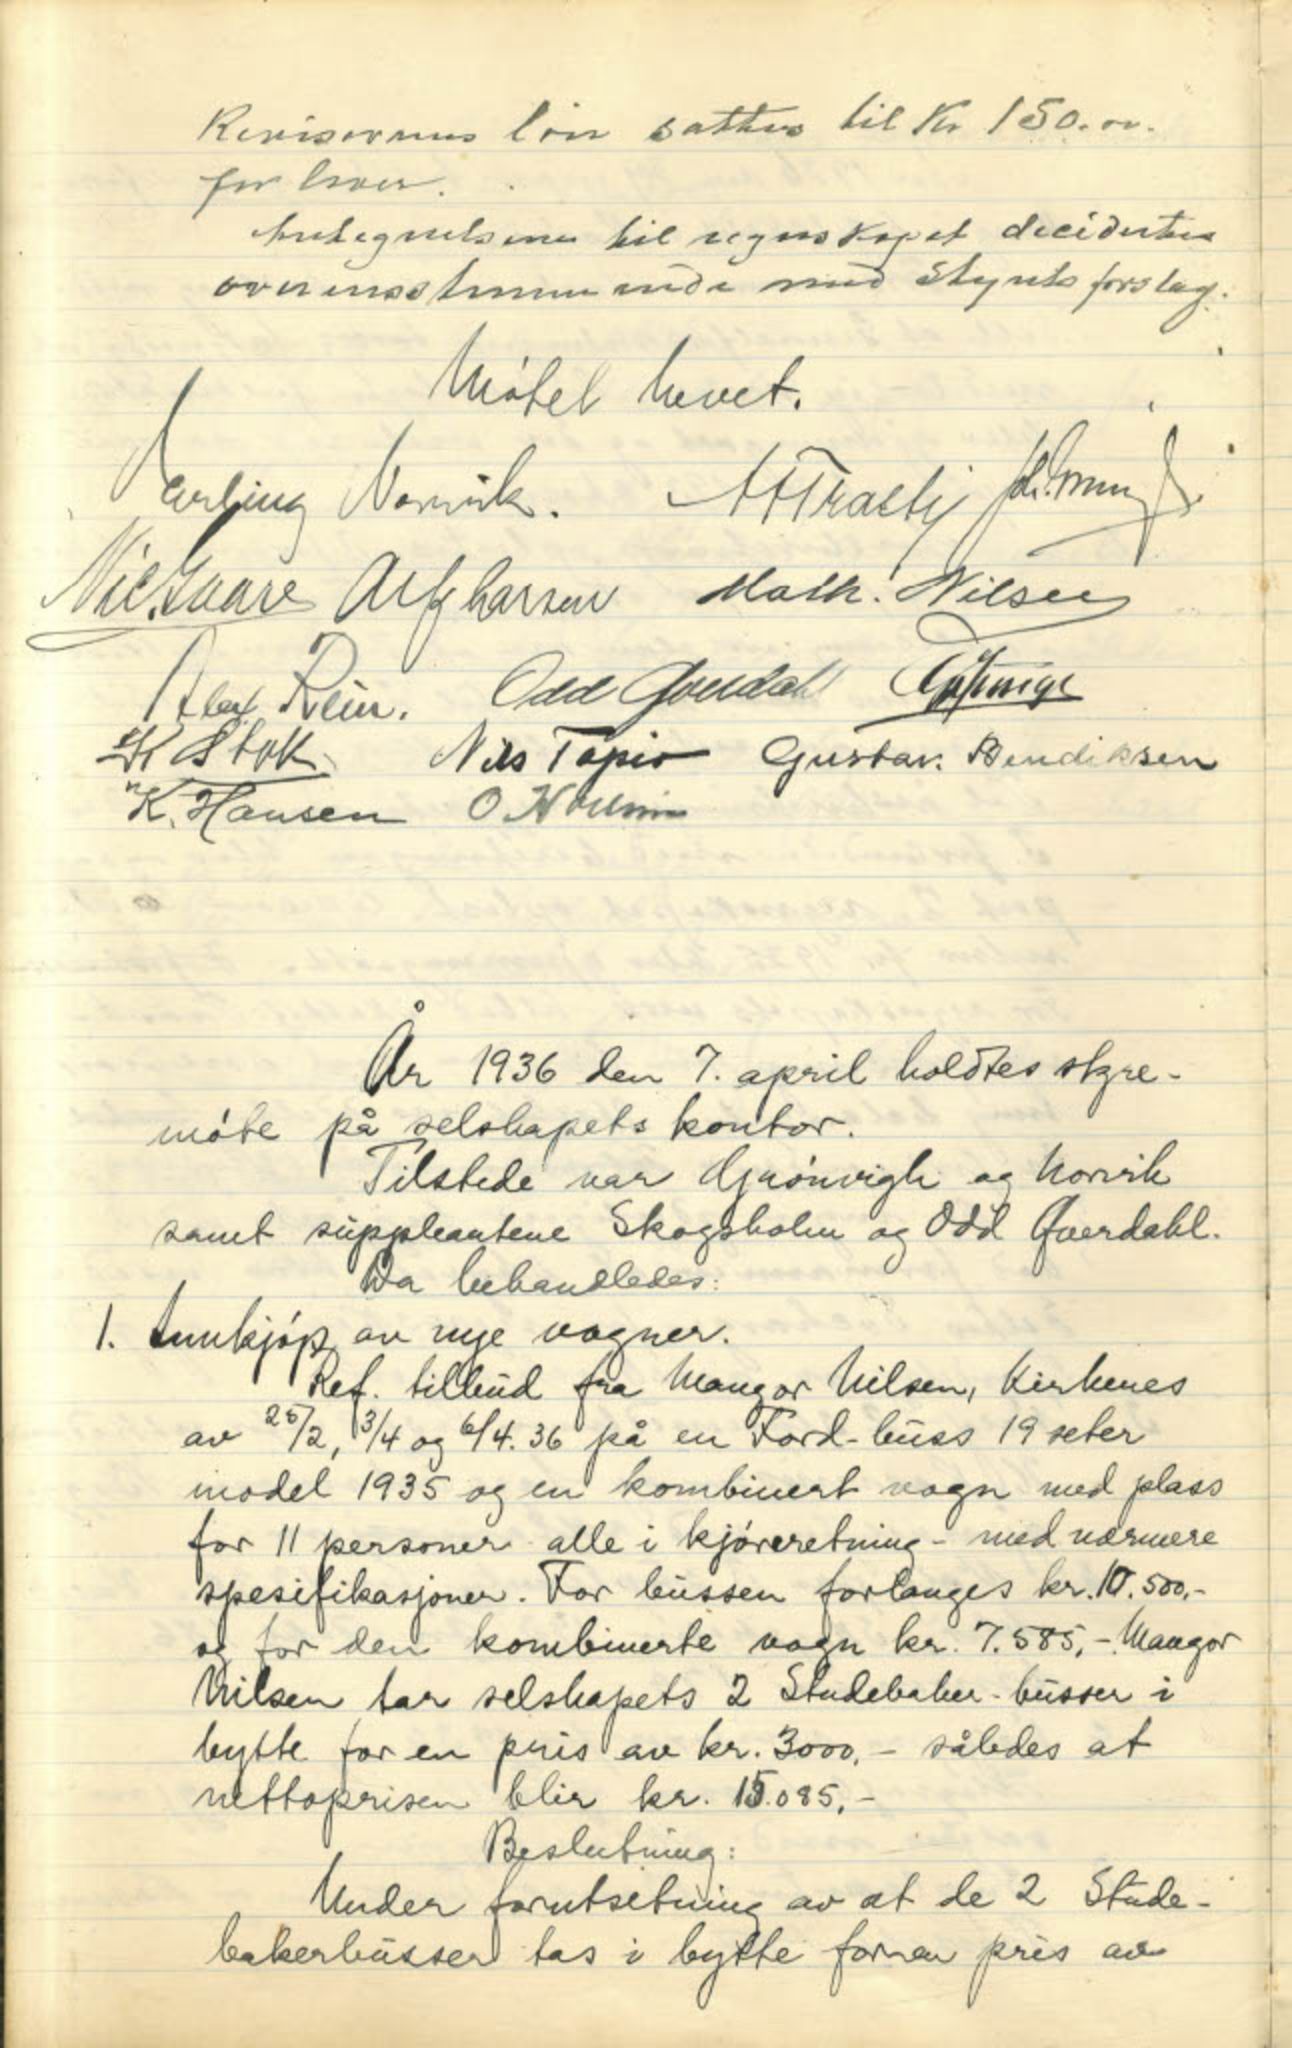 Revisorenes lön sattes til Kr 150.00.
for hver.
Antegnelsene til regnskapet decidertes
overensstemmende med Styrets forslag.
Mötet hevet.
Erling Norvik.
Nic. Gaare Alf Larsen Math. Nilsen
Alex Rein. Odd Gverdahl
K Stok Nils Tapio Gustav. Bendiksen
K. Hansen
År 1936 den 7. april holdtes styre-
möte på selskapets kontor.
Tilstede var Grönvigh og Norvik
samt suppleantene Skogsholm og Odd Gverdahl.
Da behandledes:
1. Innkjöp av nye vogner.
Ref. tilbud fra Mangor Nilsen, Kirkenes
av 25/2, 3/4 og 6/4. 36 på en Ford-buss 19 seter
model 1935 og en kombinert vogn med plass
for 11 personer alle i kjöreretning - med nærmere
spesifikasjoner. For bussen forlanges kr. 10.500,-
og for den kombinerte vogn kr. 7.585,-. Mangor
Nilsen tar selskapets 2 Studebaker-busser i
bytte for en pris av kr. 3000,- således at
nettoprisen blir kr. 15.085,-
Beslutning:
Under forutsetning av at de 2 Stude-
bakerbusser tas i bytte for en pris av